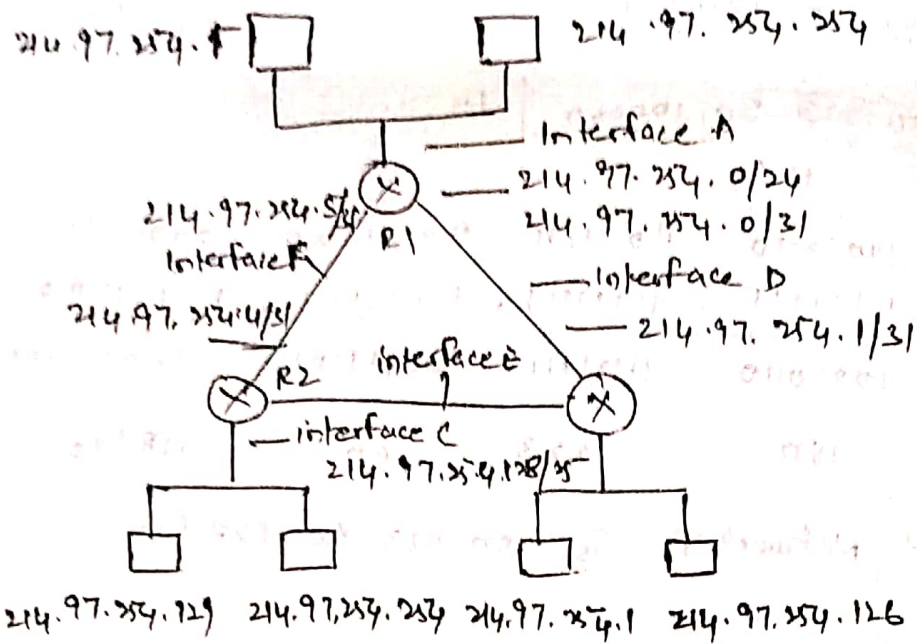 214.97.254.1
214.97.254.254
Interface A
214.97.254.0/24
214.97.254.0/31
214.97.254.5/31
R1
Interface F
Interface D
214.97.254.4/31
214.97.254.1/31
interface E
R2
interface C
214.97.254.128/25
214.97.254.129 214.97,254.254 214.97.254.1 214.97.254.126